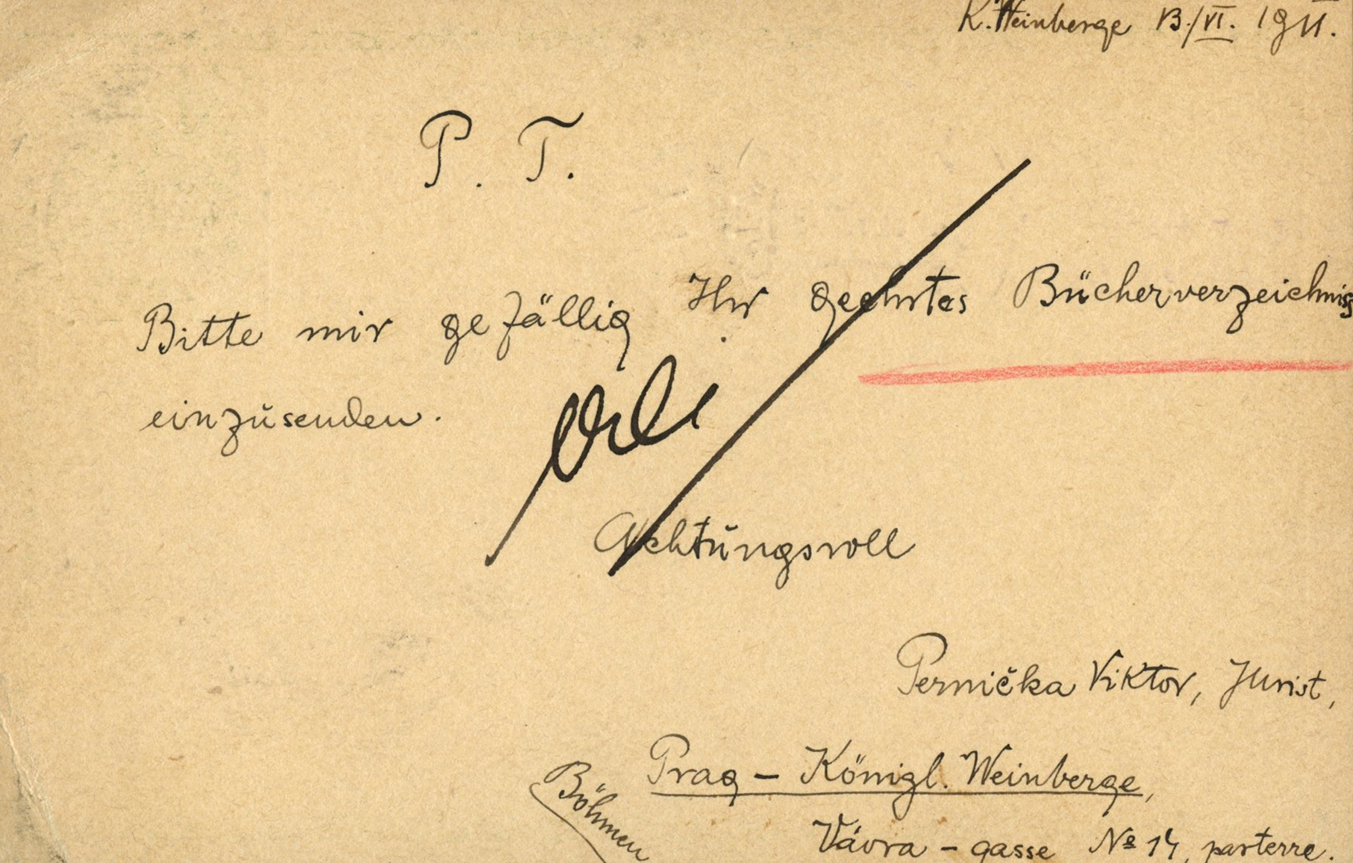 K. Weinberge 13./VI. 1911.
P. T.
Bitte mir gefällig Ihr geehrtes Bücherverzeichnis
einzusenden.
Achtungsvoll
Pernička Viktor, Jurist,
Prag – Königl. Weinberge,
Böhmen
Vávra – gasse № 14, parterre.